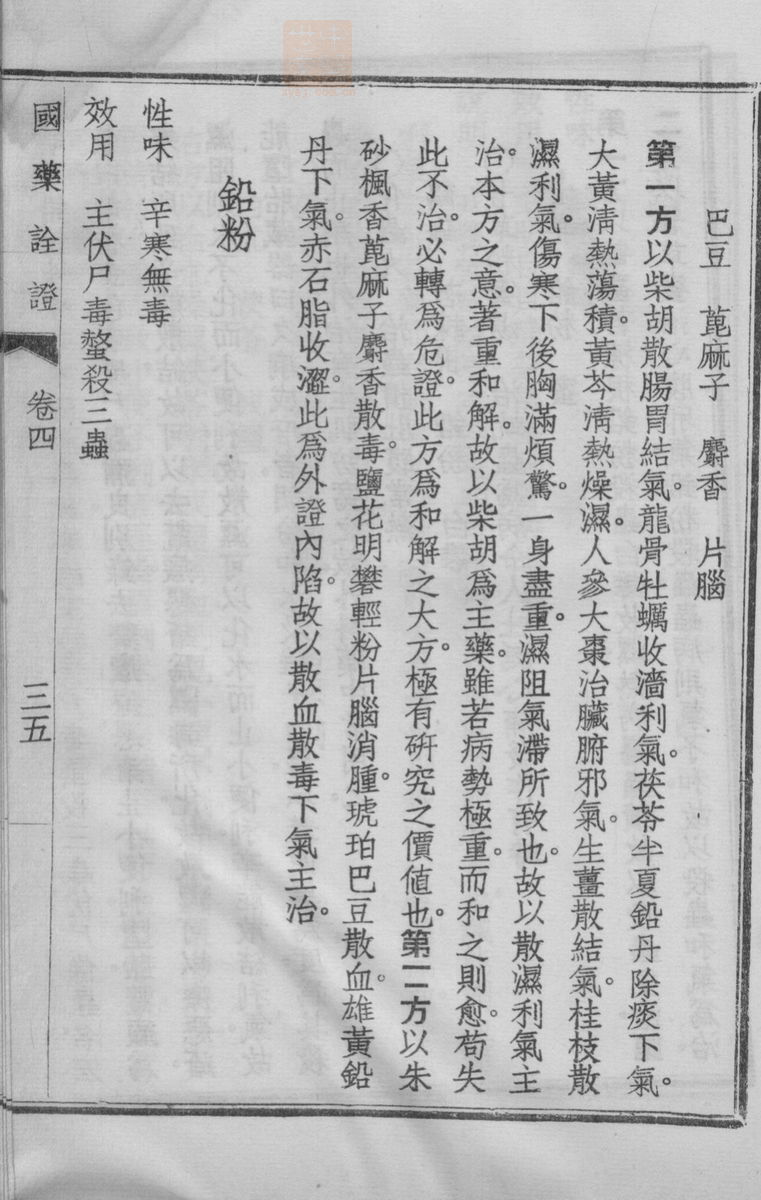 巴豆　蓖麻子　麝香　片腦
第一方以柴胡散腸胃結氣。龍骨牡蠣收濇利氣。茯苓半夏鉛丹除痰下氣。
大黃淸熱蕩積。黃芩淸熱燥濕。人參大棗治臟腑邪氣。生薑散結氣。桂枝散
濕利氣。傷寒下後胸滿煩驚。一身盡重。濕阻氣滯所致也。故以散濕利氣主
治。本方之意。著重和解。故以柴胡爲主藥。雖若病勢極重。而和之則愈。苟失
此不治。必轉爲危證。此方爲和解之大方。極有硏究之價値也。第二方以朱
砂楓香蓖麻子麝香散毒。鹽花明礬輕粉片腦消腫。琥珀巴豆散血。雄黃鉛
丹下氣。赤石脂收澀。此爲外證內陷。故以散血散毒下氣主治。
鉛粉
性味　辛寒無毒
效用　主伏尸毒螫殺三蟲
國藥詮證　卷四　三五